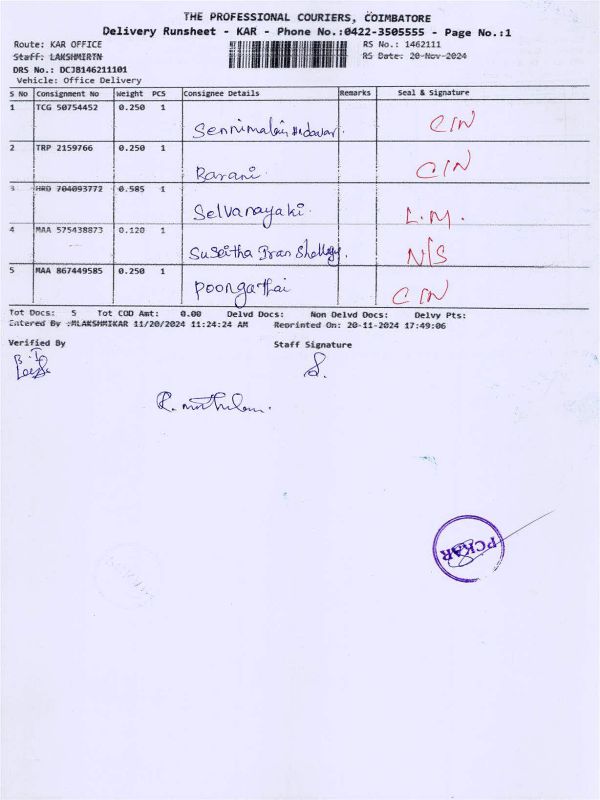 THE PROFESSIONAL COURIERS, COIMBATORE
Delivery Runsheet - KAR - Phone No.:0422-3505555 - Page No.:1
Route: KAR OFFICE RS No.: 1462111
Staff: LAKSHMIRTN RS Date: 20-Nov-2024
DRS No.: DCJB146211101
Vehicle: Office Delivery
S No Consignment No Weight PCS Consignee Details Remarks Seal & Signature
1 TCG 50754452 0.250 1
C/N
2 TRP 2159766 0.250 1
Barani. C/N
3 HRD 704093772 0.585 1
Selvanayaki. L.M.
4 MAA 575438873 0.120 1
N/S
5 MAA 867449585 0.250 1
Poongathai C/N
Tot Docs: 5 Tot COD Amt: 0.00 Delvd Docs: Non Delvd Docs: Delvy Pts:
Entered By :MLAKSHMIKAR 11/20/2024 11:24:24 AM Reprinted On: 20-11-2024 17:49:06
Verified By Staff Signature
PCKAR